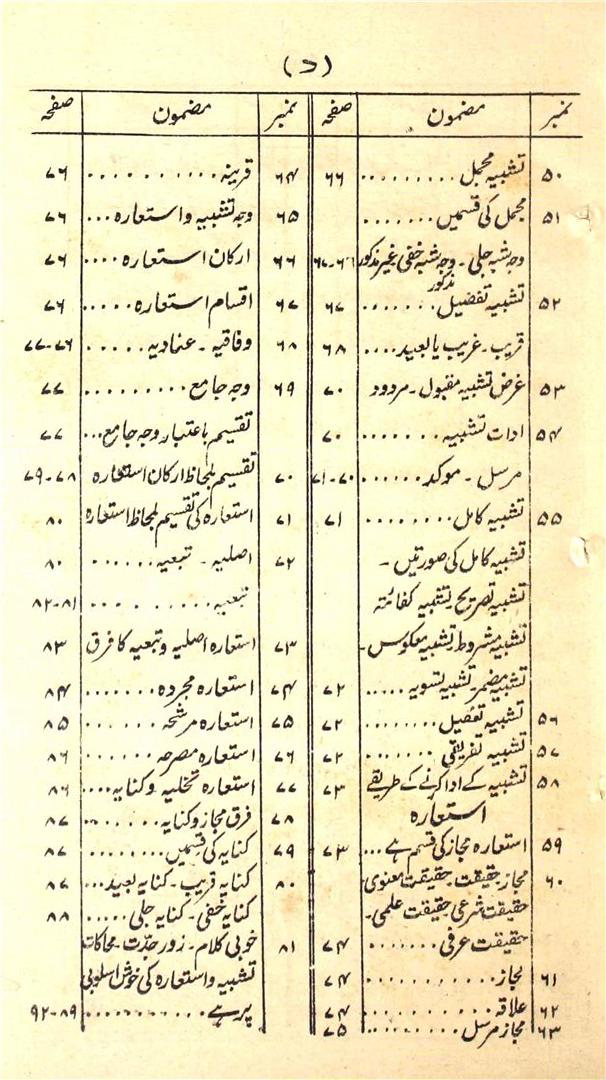 (د)
نمبر مضمون صفحہ
۵۰ تشبیہ مجمل ......... ۶۶
۵۱ مجمل کی قسمیں .......
وجہ شبہ جلی - وجہ شبہ خفی غیر مذکور ۶۶-۶۷
مذکور
۵۲ تشبیہ تفضیل ....... ۶۷
قریب - غریب یا بعید .... ۶۸
۵۳ غرض تشبیہ مقبول - مردود ۷۰
۵۴ ادات تشبیہ ....... ۷۰
مرسل - موکد ...... ۷۰-۷۱
۵۵ تشبیہ کامل ........ ۷۱
تشبیہ کامل کی صورتیں -
تشبیہ تصریح تشبیہ کفائتہ
تشبیہ مشروط تشبیہ معکوس -
تشبیہ مضمر - تشبیہ تسویہ ..... ۷۲
۵۶ تشبیہ تفصیل ........ ۷۲
۵۷ تشبیہ تفریقی ....... ۷۲
۵۸ تشبیہ کے ادا کرنے کے طریقے ۷۳
استعارہ
۵۹ استعارہ مجاز کی قسم ہے ... ۷۳
۶۰ مجاز حقیقت - حقیقت معنوی
حقیقت شرعی - حقیقت علمی -
حقیقت عرفی ....... ۷۴
۶۱ مجاز .......... ۷۴
۶۲ علاقہ .......... ۷۴
۶۳ مجاز مرسل ......... ۷۵
نمبر مضمون صفحہ
۶۴ قرینہ .......... ۷۶
۶۵ وجہ تشبیہ و استعارہ ... ۷۶
۶۶ ارکان استعارہ .... ۷۶
۶۷ اقسام استعارہ ..... ۷۶
۶۸ وفاقیہ - عنادیہ ..... ۷۶-۷۷
۶۹ وجہ جامع ......... ۷۷
تقسیم باعتبار وجہ جامع ... ۷۷
۷۰ تقسیم بلحاظ ارکان استعارہ ۷۸-۷۹
۷۱ استعارہ کی تقسیم بلحاظ استعارہ ۸۰
۷۲ اصلیہ - تبعیہ ...... ۸۰
تبعیہ .......... ۸۱-۸۲
۷۳ استعارہ اصلیہ و تبعیہ کا فرق ۸۳
۷۴ استعارہ مجردہ ..... ۸۴
۷۵ استعارہ مرشحہ ..... ۸۵
۷۶ استعارہ مصرحہ ...... ۸۶
۷۷ استعارہ تخلیہ و کنایہ .... ۸۶
۷۸ فرق مجاز و کنایہ ....... ۸۷
۷۹ کنایہ کی قسمیں ........ ۸۷
۸۰ کنایہ قریب - کنایہ بعید ... ۸۷
کنایہ خفی - کنایہ جلی ..... ۸۸
۸۱ خوبی کلام - زور جدّت - محاکات
تشبیہ و استعارہ کی خوش اسلوبی
پر ہے ............ ۸۹-۹۲